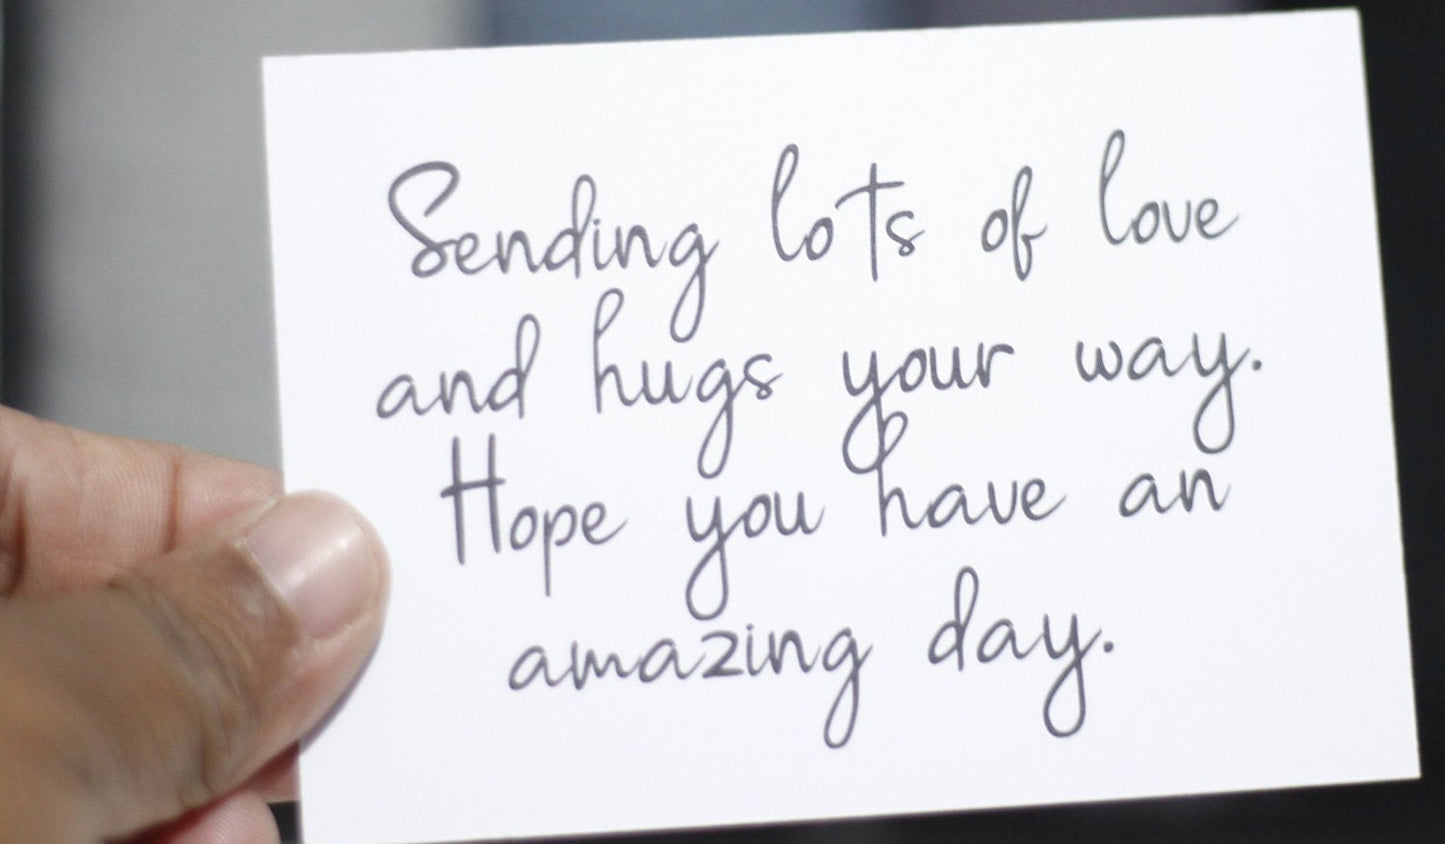 Sending lots of love
and hugs your way.
Hope you have an
amazing day.